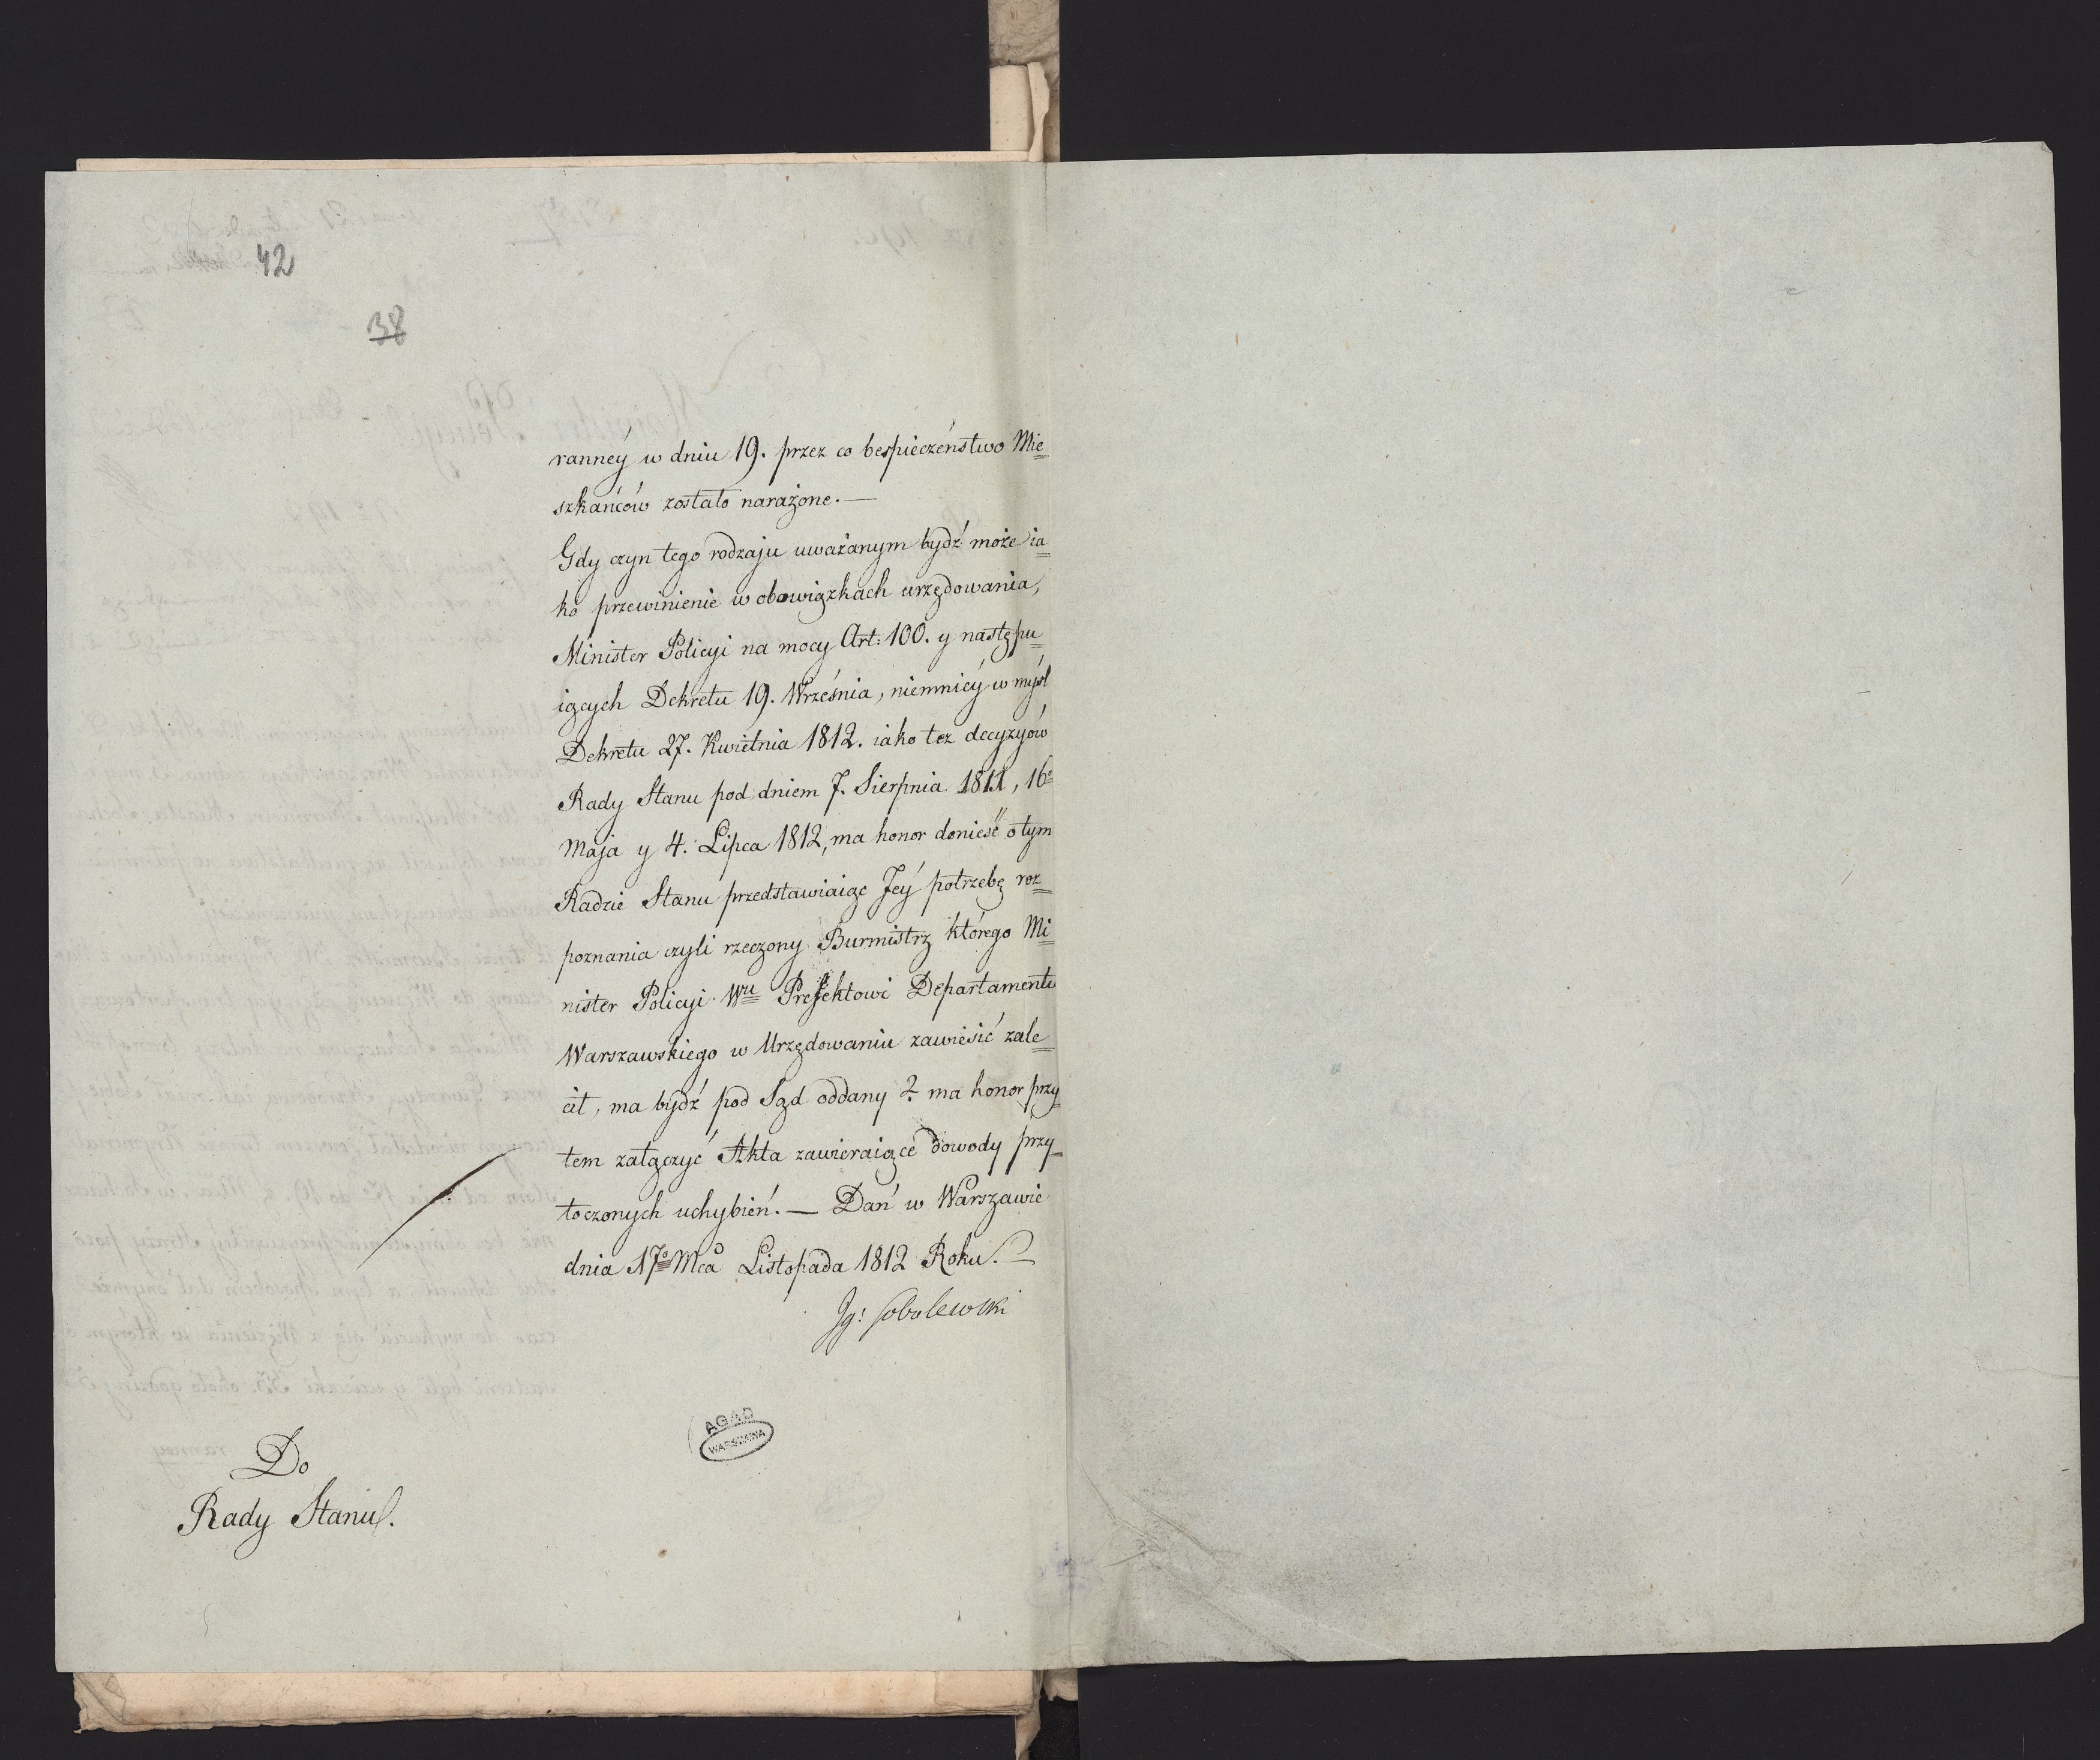 42
38
ranney w dniu 19. przez co bespieczeństwo Mie=
szkańców zostało narażone. —
Gdy czyn tego rodzaju uważanym bydź może ia=
ko przewinienie w obowiązkach urzędowania,
Minister Policyi na mocy Art: 100. y następu=
iących Dekretu 19. Września, niemnićy w myśl
Dekretu 27. Kwietnia 1812. iako też decyzyów
Rady Stanu pod dniem 7. Sierpnia 1811, 16º
Maja y 4. Lipca 1812, ma honor donieść o tym
Radzie Stanu przedstawiaiąc Jey potrzebę roz=
poznania czyli rzeczony Burmistrz którego Mi=
nister Policyi Wu Prefektowi Departamentu
Warszawskiego w Urzędowaniu zawiesić zale=
cił, ma bydź pod Sąd oddany? ma honor przy
tem załączyć Akta zawieraiące dowody przy=
toczonych uchybień. — Dań w Warszawie
dnia 17º Mca Listopada 1812 Roku. —
Ig: Sobolewski
AGAD
WARSZAWA
Do
Rady Stanu.